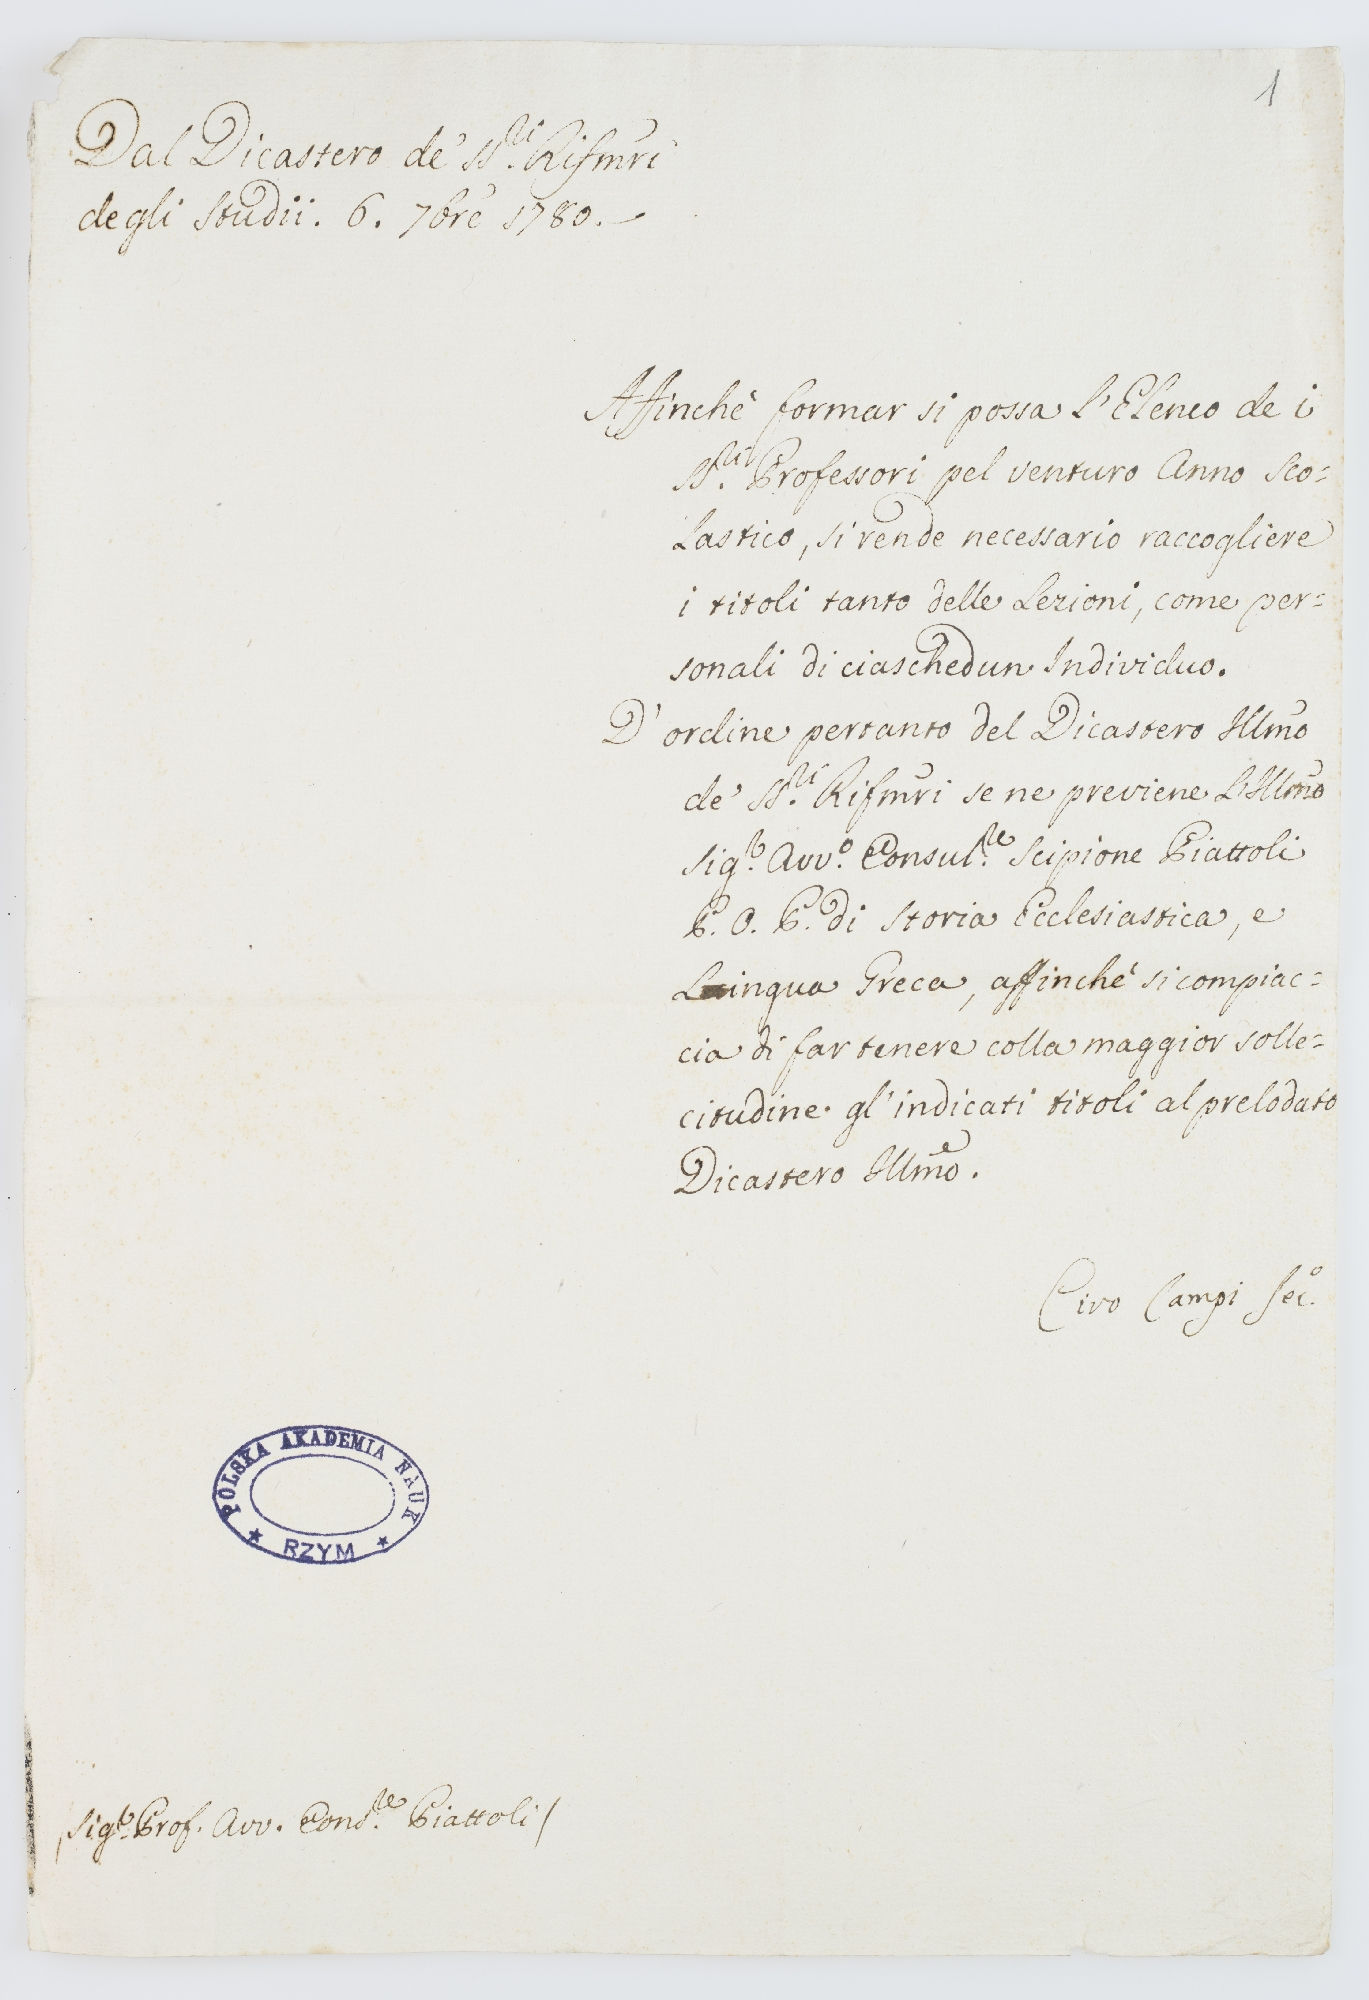 1
Dal Dicastero de' SS.ri Rifm̃ri
degli Studii. 6. 7bre 1780.
Affinchè formar si possa l'Elenco de i
SS.ri Professori pel venturo Anno Sco=
lastico, si rende necessario raccogliere
i titoli tanto delle Lezioni, come per=
sonali di ciaschedun Individuo.
D'ordine pertanto del Dicastero Illm̃o
de' SS.ri Rifm̃ri se ne previene L'Illm̃o
Sig.r Avv.o Consul.re Scipione Piattoli
P. O. P. di Storia Ecclesiastica, e
Lingua Greca, affinchè si compiac=
cia di far tenere colla maggior solle=
citudine gl'indicati titoli al prelodato
Dicastero Illm̃o.
Ciro Campi Sec.o
POLSKA AKADEMIA NAUK
RZYM
Sig.r Prof. Avv. Cons.re Piattoli